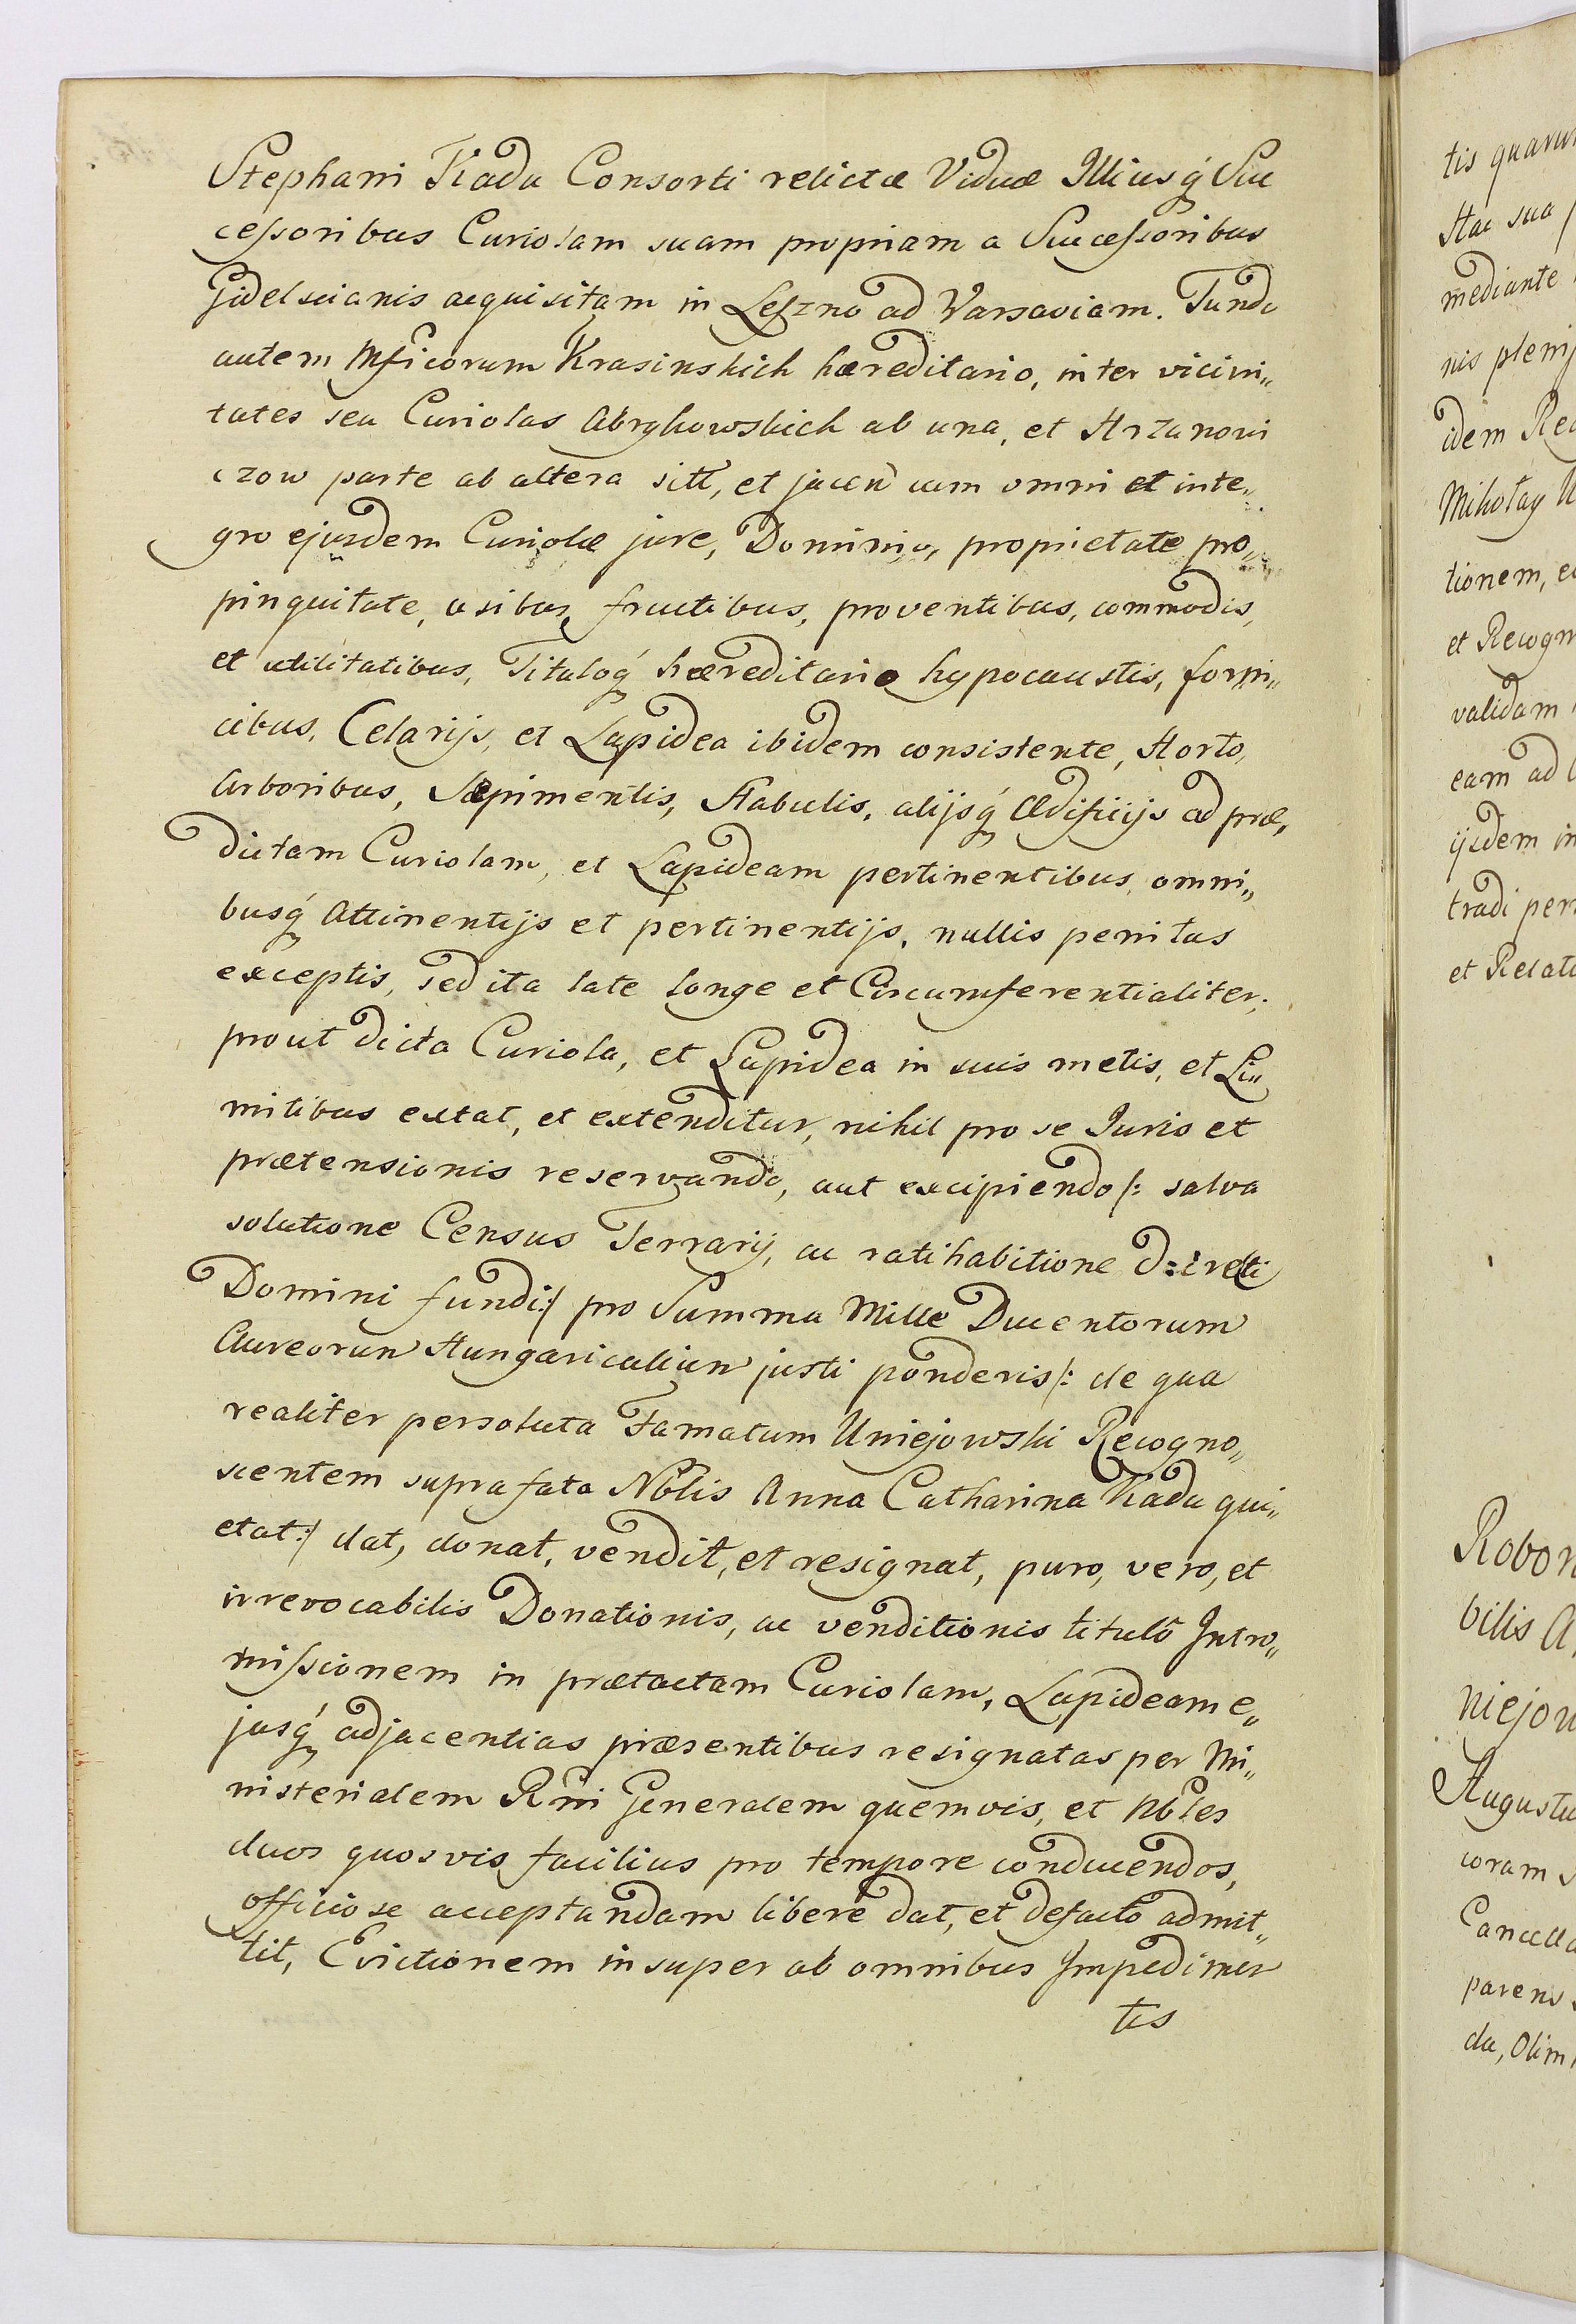 Stephani Kadu Consorti relictæ Viduæ Illiusq́ Suc
cessoribus Curiolam suam propriam a Successoribus
Gidelscianis acquisitam in Leszno ad Varsaviam. Fundo
autem Mficorum Krasinskich hæreditario, inter vicini„
tates seu Curiolas Abrykowskich ab una, et Arzanowi
czow parte ab altera sitt, et jacen cum omni et inte„
gro ejusdem Curiolæ jure, Dominio, proprietate pro„
pinquitate, usibus, fructibus, proventibus, commodis,
et utilitatibus, Tituloq́ hæreditario hypocaustis, forni„
cibus, Celarijs, et Lapidea ibidem consistente, Horto,
Arboribus, Sæpimentis, Stabulis, alijsq́ Ædificijs ad præ„
dictam Curiolam, et Lapideam pertinentibus, omni„
busq́ Attinentijs et pertinentijs, nullis penitus
exceptis, sed ita late longe et Circumferentialiter,
prout dicta Curiola, et Lapidea in suis metis, et Li„
mitibus extat, et extenditur, nihil pro se Juris et
prætensionis reservando, aut excipiendo /: salva
solutione Census Terrarij, ac ratihabitione directi
Domini fundi :/ pro Summa Mille Ducentorum
Aureorun Hungaricaliun justi ponderis /: de qua
realiter persoluta Famatum Uniejowski Recogno„
scentem suprafata Nblis Anna Catharina Kadu qui„
etat :/ dat, donat, vendit, et resignat, puro, vero, et
irrevocabilis Donationis, ac venditionis titulô Intro„
missionem in prætactam Curiolam, Lapideam e„
jusq́ adjacentias præsentibus resignatas per Mi„
nisterialem Rni Generalem quemvis, et Nbles
duos quosvis facilius pro tempore conducendos,
officiose acceptandam liberè dat, et defactô admit„
tit, Evictionem insuper ab omnibus Impedimen
tis
tis
Hac sua
mediante
nis
idem
Mikołay
tionem,
et
validam
eam ad
ijsdem in
tradi
et
bilis
coram